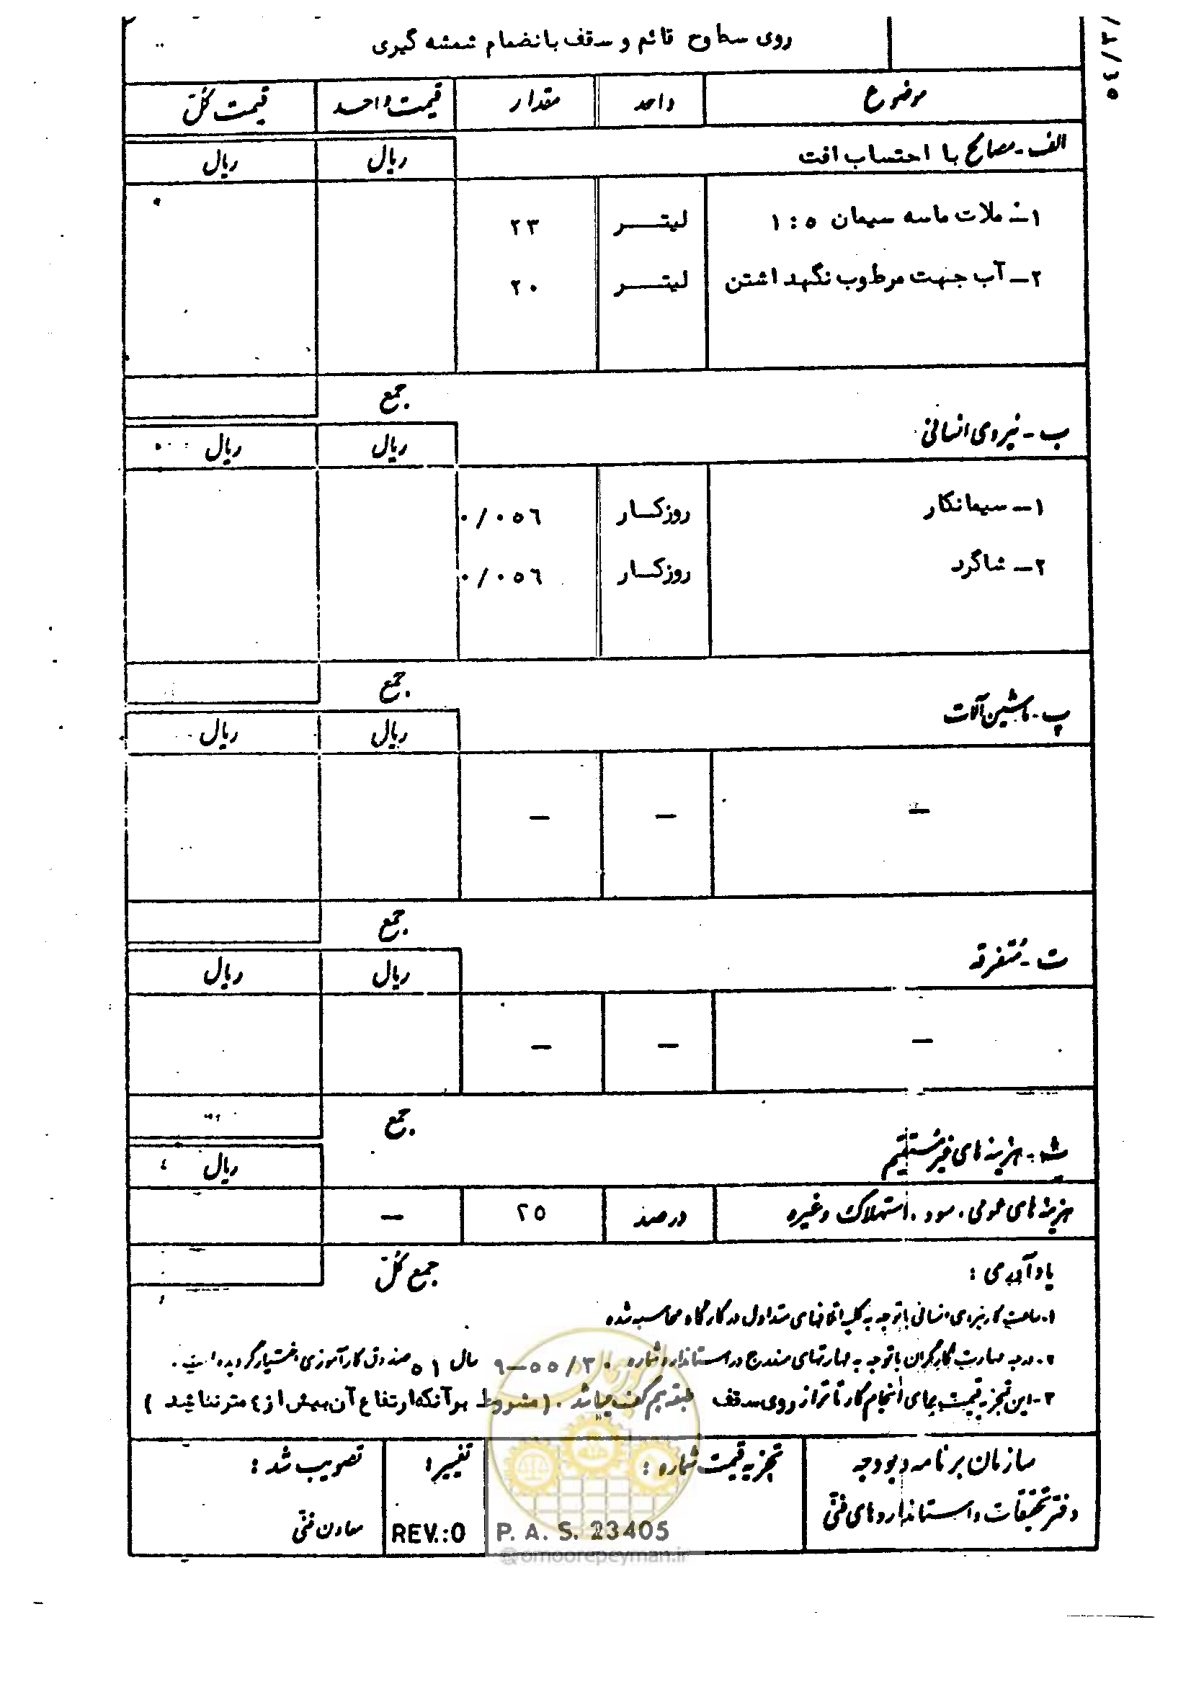 ۴۵/۳/
روی سطوح قائم و سقف بانضمام شمشه گیری
موضوع واحد مقدار قیمت واحد قیمت کل
الف - مصالح با احتساب افت ریال ریال
۱ـ ملات ماسه سیمان ۱:۵ لیتر ۲۳
۲ـ آب جهت مرطوب نگهداشتن لیتر ۲۰
جمع
ب - نیروی انسانی ریال ریال
۱ـ سیمانکار روزکار ۰/۰۵۶
۲ـ شاگرد روزکار ۰/۰۵۶
جمع
پ - ماشین آلات ریال ریال
— — —
جمع
ت - متفرقه ریال ریال
— — —
جمع
ث - هزینه های غیرمستقیم ریال
هزینه های عمومی، سود، استهلاک وغیره درصد ۲۵ —
جمع کل
یادآوری :
۱ـ ساعت کار نیروی انسانی باتوجه به کلیه اتلافهای متداول در کارگاه محاسبه شده
۲ـ درجه مهارت کارگران باتوجه به مهارتهای مندرج در استاندارد شماره ۹-۵۵/۳۰ سال ۵۱ صندوق کارآموزی اختیار گردیده است .
۳ـ این تجزیه قیمت برای انجام کار تا تراز روی سقف طبقه همکف میباشد . (مشروط برآنکه ارتفاع آن بیش از ۴ متر نباشد )
سازمان برنامه و بودجه تجزیه قیمت شماره : تغییر: تصویب شد :
دفتر تحقیقات و استانداردهای فنی P. A. S. 23405 REV.:0 معاون فنی
امور پیمان
@omoorepeyman.ir